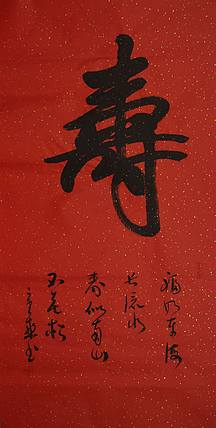 壽
福如东海
长流水
寿似南山
不老松